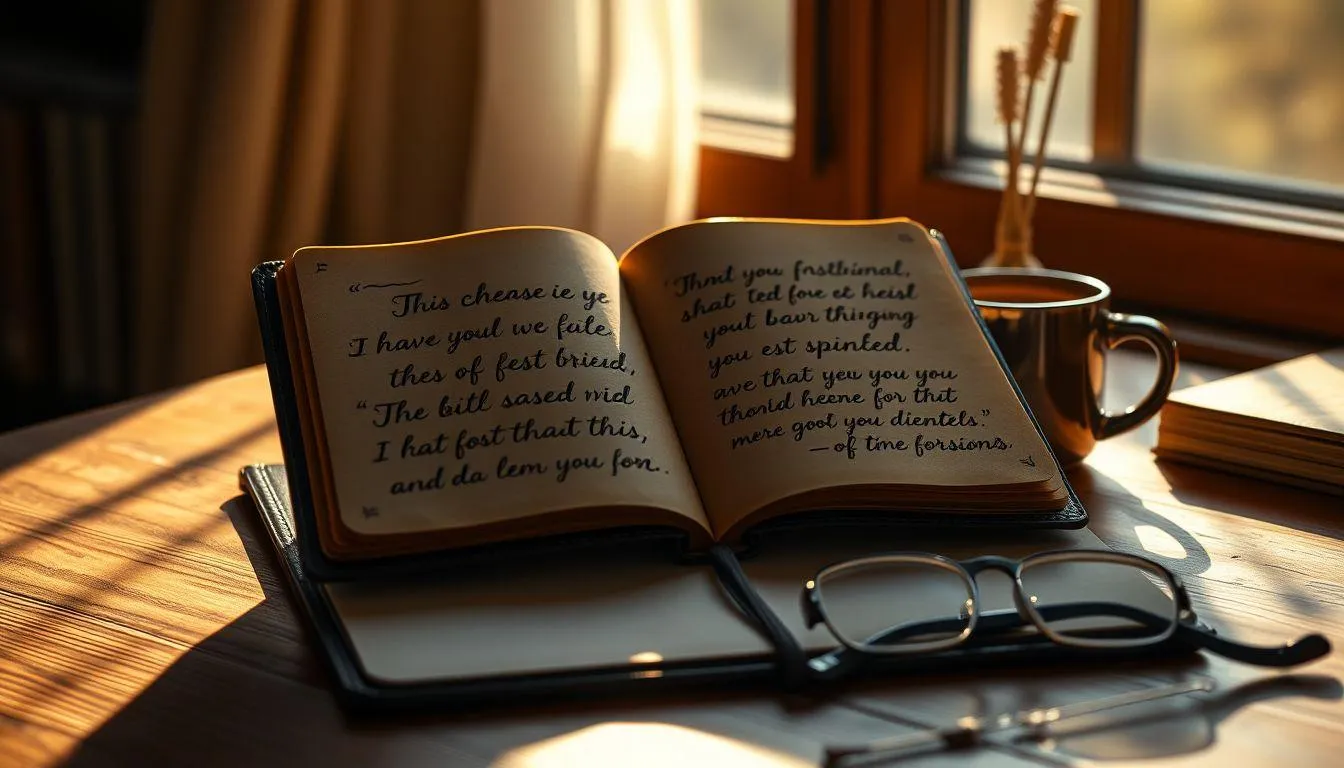 “
This chense ie ye
I have youl we fule.
thes of fest bried,
“The bitl sased wid
I hat fost thact this,
and da lem you fon..
Thnd you
shat ted foe et heisl
yout bavr thigging
you est spinled.
ave that yeu you you
thonid heene for thit
mere goot you dientels.”
—of tine forsions.